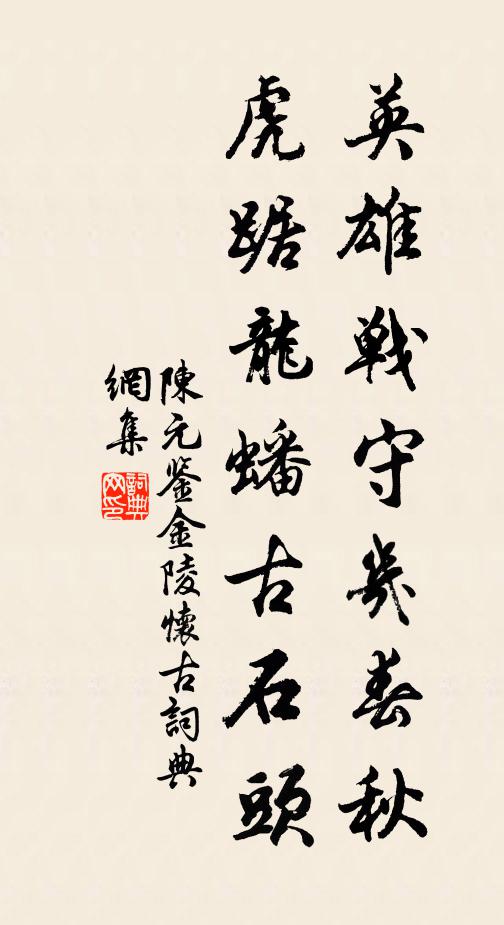 英雄戰守幾春秋
虎踞龍蟠古石頭
陳元鉴金陵懷古詞典
網集
詞典
网印